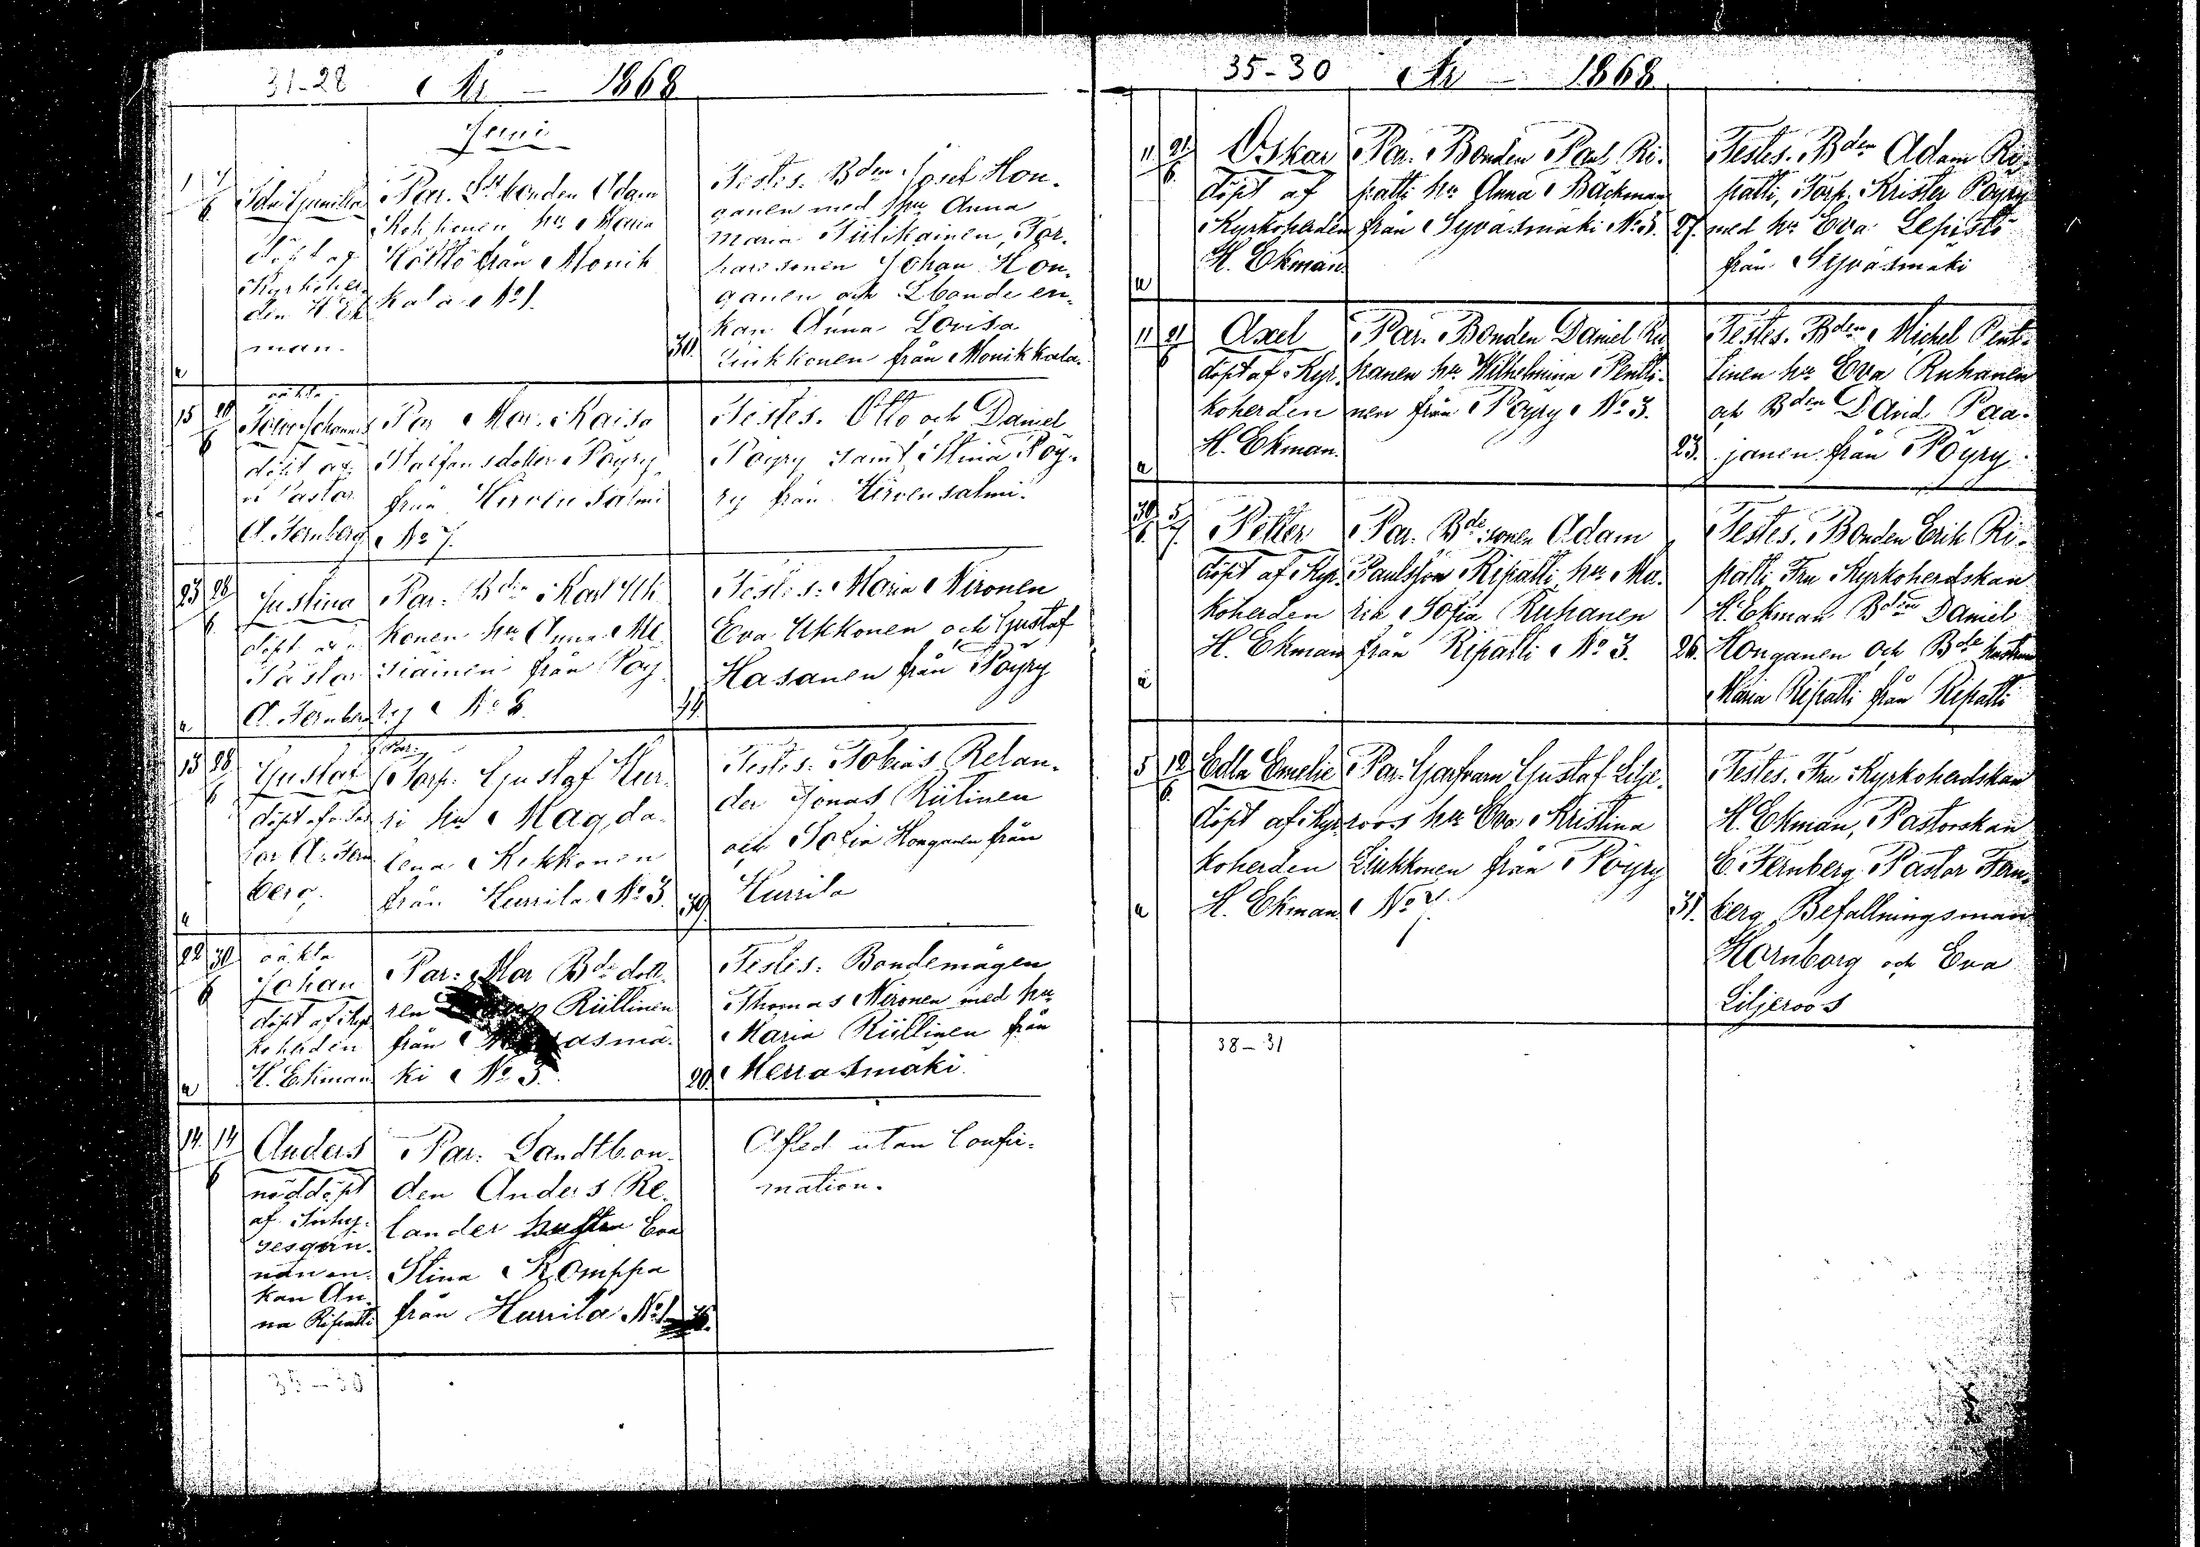 31-28 År - 1868
Juni
1 7/6
Ida Gunilla
döpt af
Kyrkoher
den H. Ek
man.
Par. Stbonden Adam
Kekkonen hu Maria
Költtö från Monik
kala No 1.
30.
Testes. Bden Josef Hon.
ganen med hu Anna
Maria Tulikainen, Tor.
parsonen Johan Hon.
ganen och Lbonde en.
kan Anna Lovisa
Liukkonen från Monikkala.
15 28/6
oäkta
döpt af
v Pastor
A. Fernberg
Par Mor. Kaisa
Staffansdotter Pöyry
från Hirvensalmi
No 7.
Testes. Otto och Daniel
Pöyry samt Stina Pöy.
ry från Hirvensalmi.
23 28/6
Justina
döpt af v
Pastor
A. Fernberg
Par. Bden Karl Uk
konen hu Anna
från Pöy
ry No 2.
Testes: Maria Nironen
Eva Ukkonen och Gustaf
Hasanen från Pöyry
13 28/6
Gustaf
döpt af v. Pas
tor A. Fern
berg.
Par.
Torp. Gustaf Kur.
ki hu Magda.
lena Kekkonen
från Hurrila No 3.
39
Testes. Tobias Relan.
der Jonas Riitinen
och Sofia Honganen från
Hurrila
22 30/6
oäkta
Johan
döpt af Kyr
koherden
H. Ekman
Par: Mor Bde dott.
ren Riittinen
från asmä.
ki No 3.
20.
Testes: Bondemågen
Thomas Nironen med hu
Maria Riittinen från
Merrasmäki.
14. 14/6
Anders
nöddöpt
af Inhy.
sesqvin.
nan en.
kan An.
na Ripatti
Par. Landtbon.
den Anders Re.
lander hustru Eva
Stina Komppa
från Hurrila No 1
Afled utan Confir.
mation.
35-30
35-30 År - 1868
11 21/6
Oskar
döpt af
Kyrkoherden
H. Ekman.
Par. Bonden Paul Ri.
patti hu Anna Bäckman
från Syväsmäki No 3.
27.
Testes. Bden Adam Ri.
patti, Torp. Krister Pöyry
med hu Eva Lepistö
från Syväsmäki
11 21/6
Axel
döpt af Kyr.
koherden
H. Ekman.
Par. Bonden Daniel Ru
hanen hu Wilhelmina Pentti.
nen från Pöyry No 3.
23.
Testes. Bden Michel Pent.
tinen hu Eva Ruhanen
och Bden David Paa.
janen från Pöyry.
30/6 5/7
Petter
döpt af Kyr.
koherden
H. Ekman
Par. Bde sonen Adam
Paulsson Ripatti hu Ma.
ria Sofia Ruhanen
från Ripatti No 3.
26.
Testes. Bonden Erik Ri.
patti, Fru Kyrkoherdskan
H. Ekman Bden Daniel
Honganen och Bde hustrun
Maria Ripatti från Ripatti
5 12/6
Edla Emelie
döpt af Kyr
koherden
H. Ekman
Par. Garfvarn Gustaf Lilje.
roos hu Eva Kristina
Liukkonen från Pöyry
No 7.
31.
Testes. Fru Kyrkoherdskan
H. Ekman, Pastorskan
E. Fernberg Pastor Fern.
berg Befallningsman
Hornborg och Eva
Liljeroos
38-31